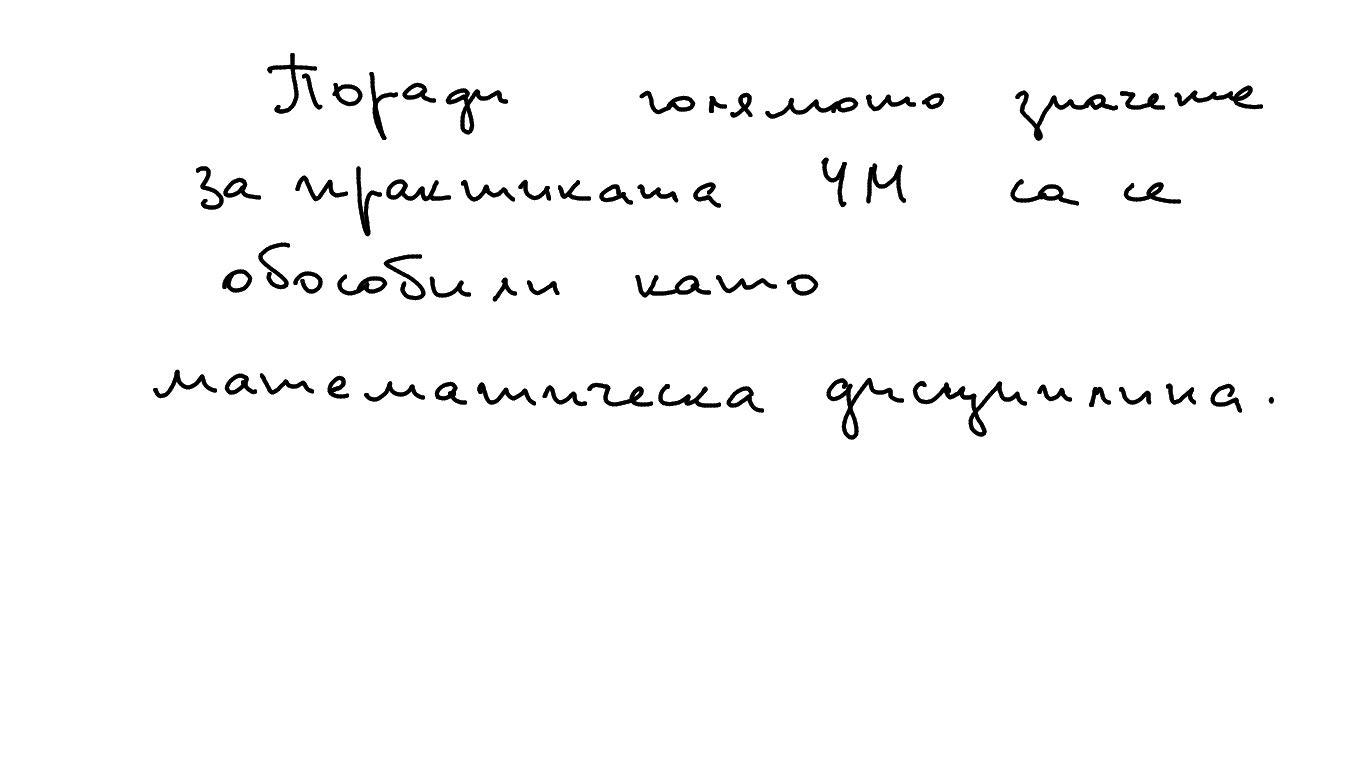 Поради голямото значение
за практиката ЧМ са се
обособили като
математическа дисциплина.